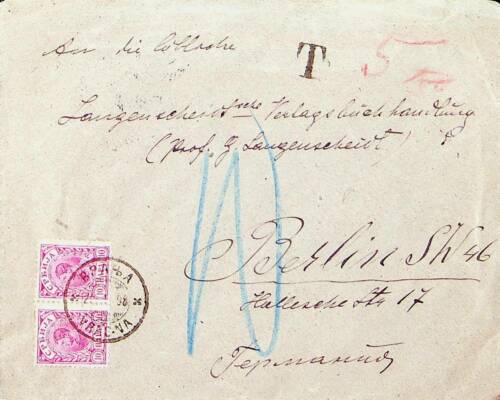 An die löbliche
T
5
Langenscheidt'sche Verlagsbuchhandlung
(Prof. G. Langenscheidt)
10
Berlin SW 46
Hallesche Str 17
Германия
СРБИЈА
10 10
ВРАЊА
98
VRAGNA
СРБИЈА
10 10